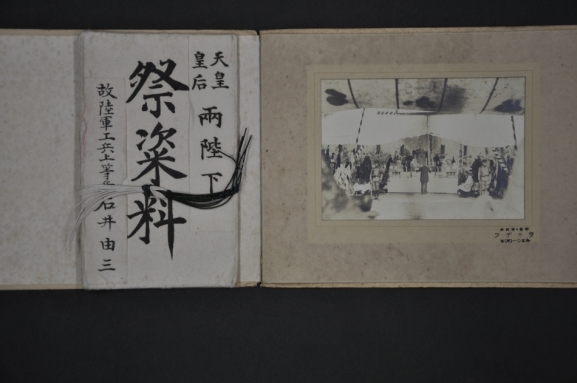 天皇
皇后
兩陛下
祭粢料
故陸軍工兵上等兵
石井由三